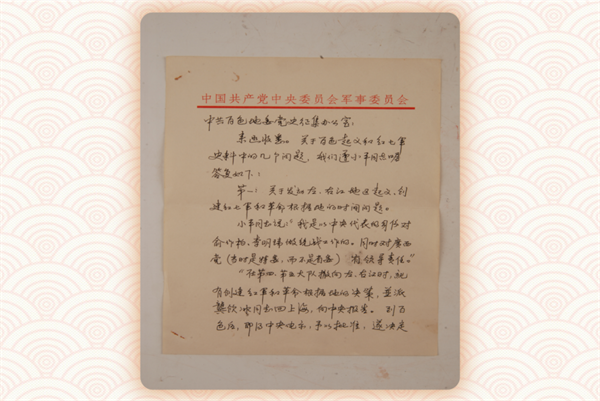 中国共产党中央委员会军事委员会
中共百色地委党史征集办公室：
来函收悉。关于百色起义和红七军
史料中的几个问题，我们遵小平同志嘱
答复如下：
第一：关于发动左、右江地区起义，创
建红七军和革命根据地的时间问题。
小平同志说：“我是以中央代表的身份对
俞作柏、李明瑞做统战工作的。同时对广西
党（当时是特委，而不是省委）有领导责任。”
“在第四、第五大队撤向左、右江时，就
有创建红军和革命根据地的决策，并派
龚饮冰同志回上海，向中央报告。到百
色后，即得中央电示，予以批准，遂决定